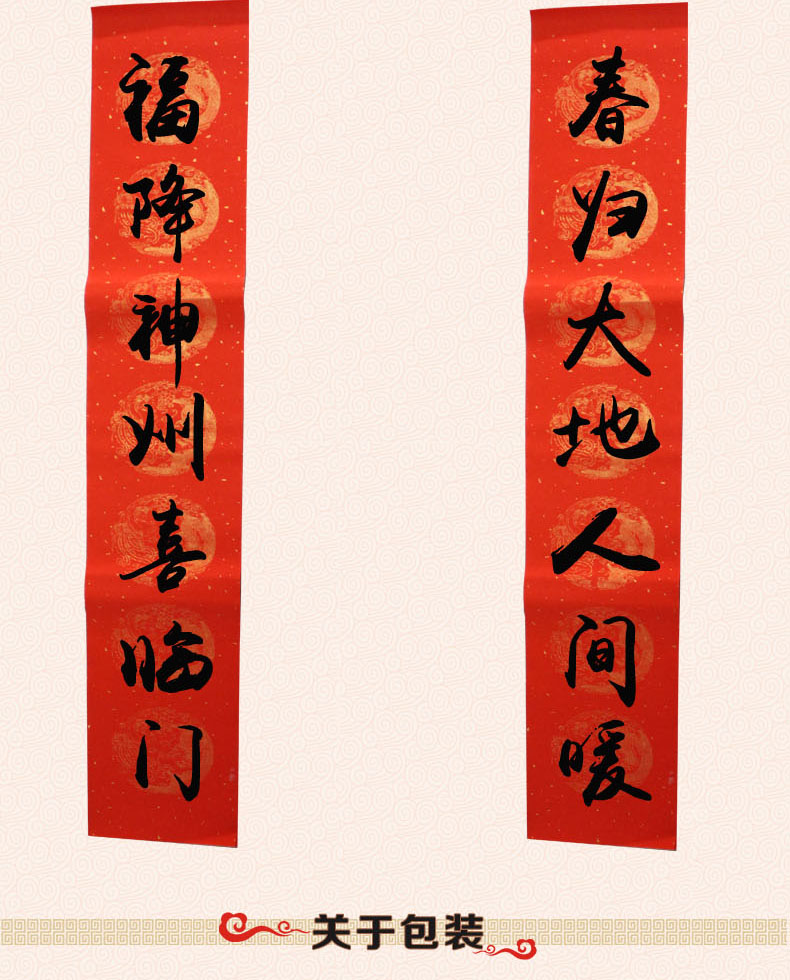 春归大地人间暖
福降神州喜临门
关于包装